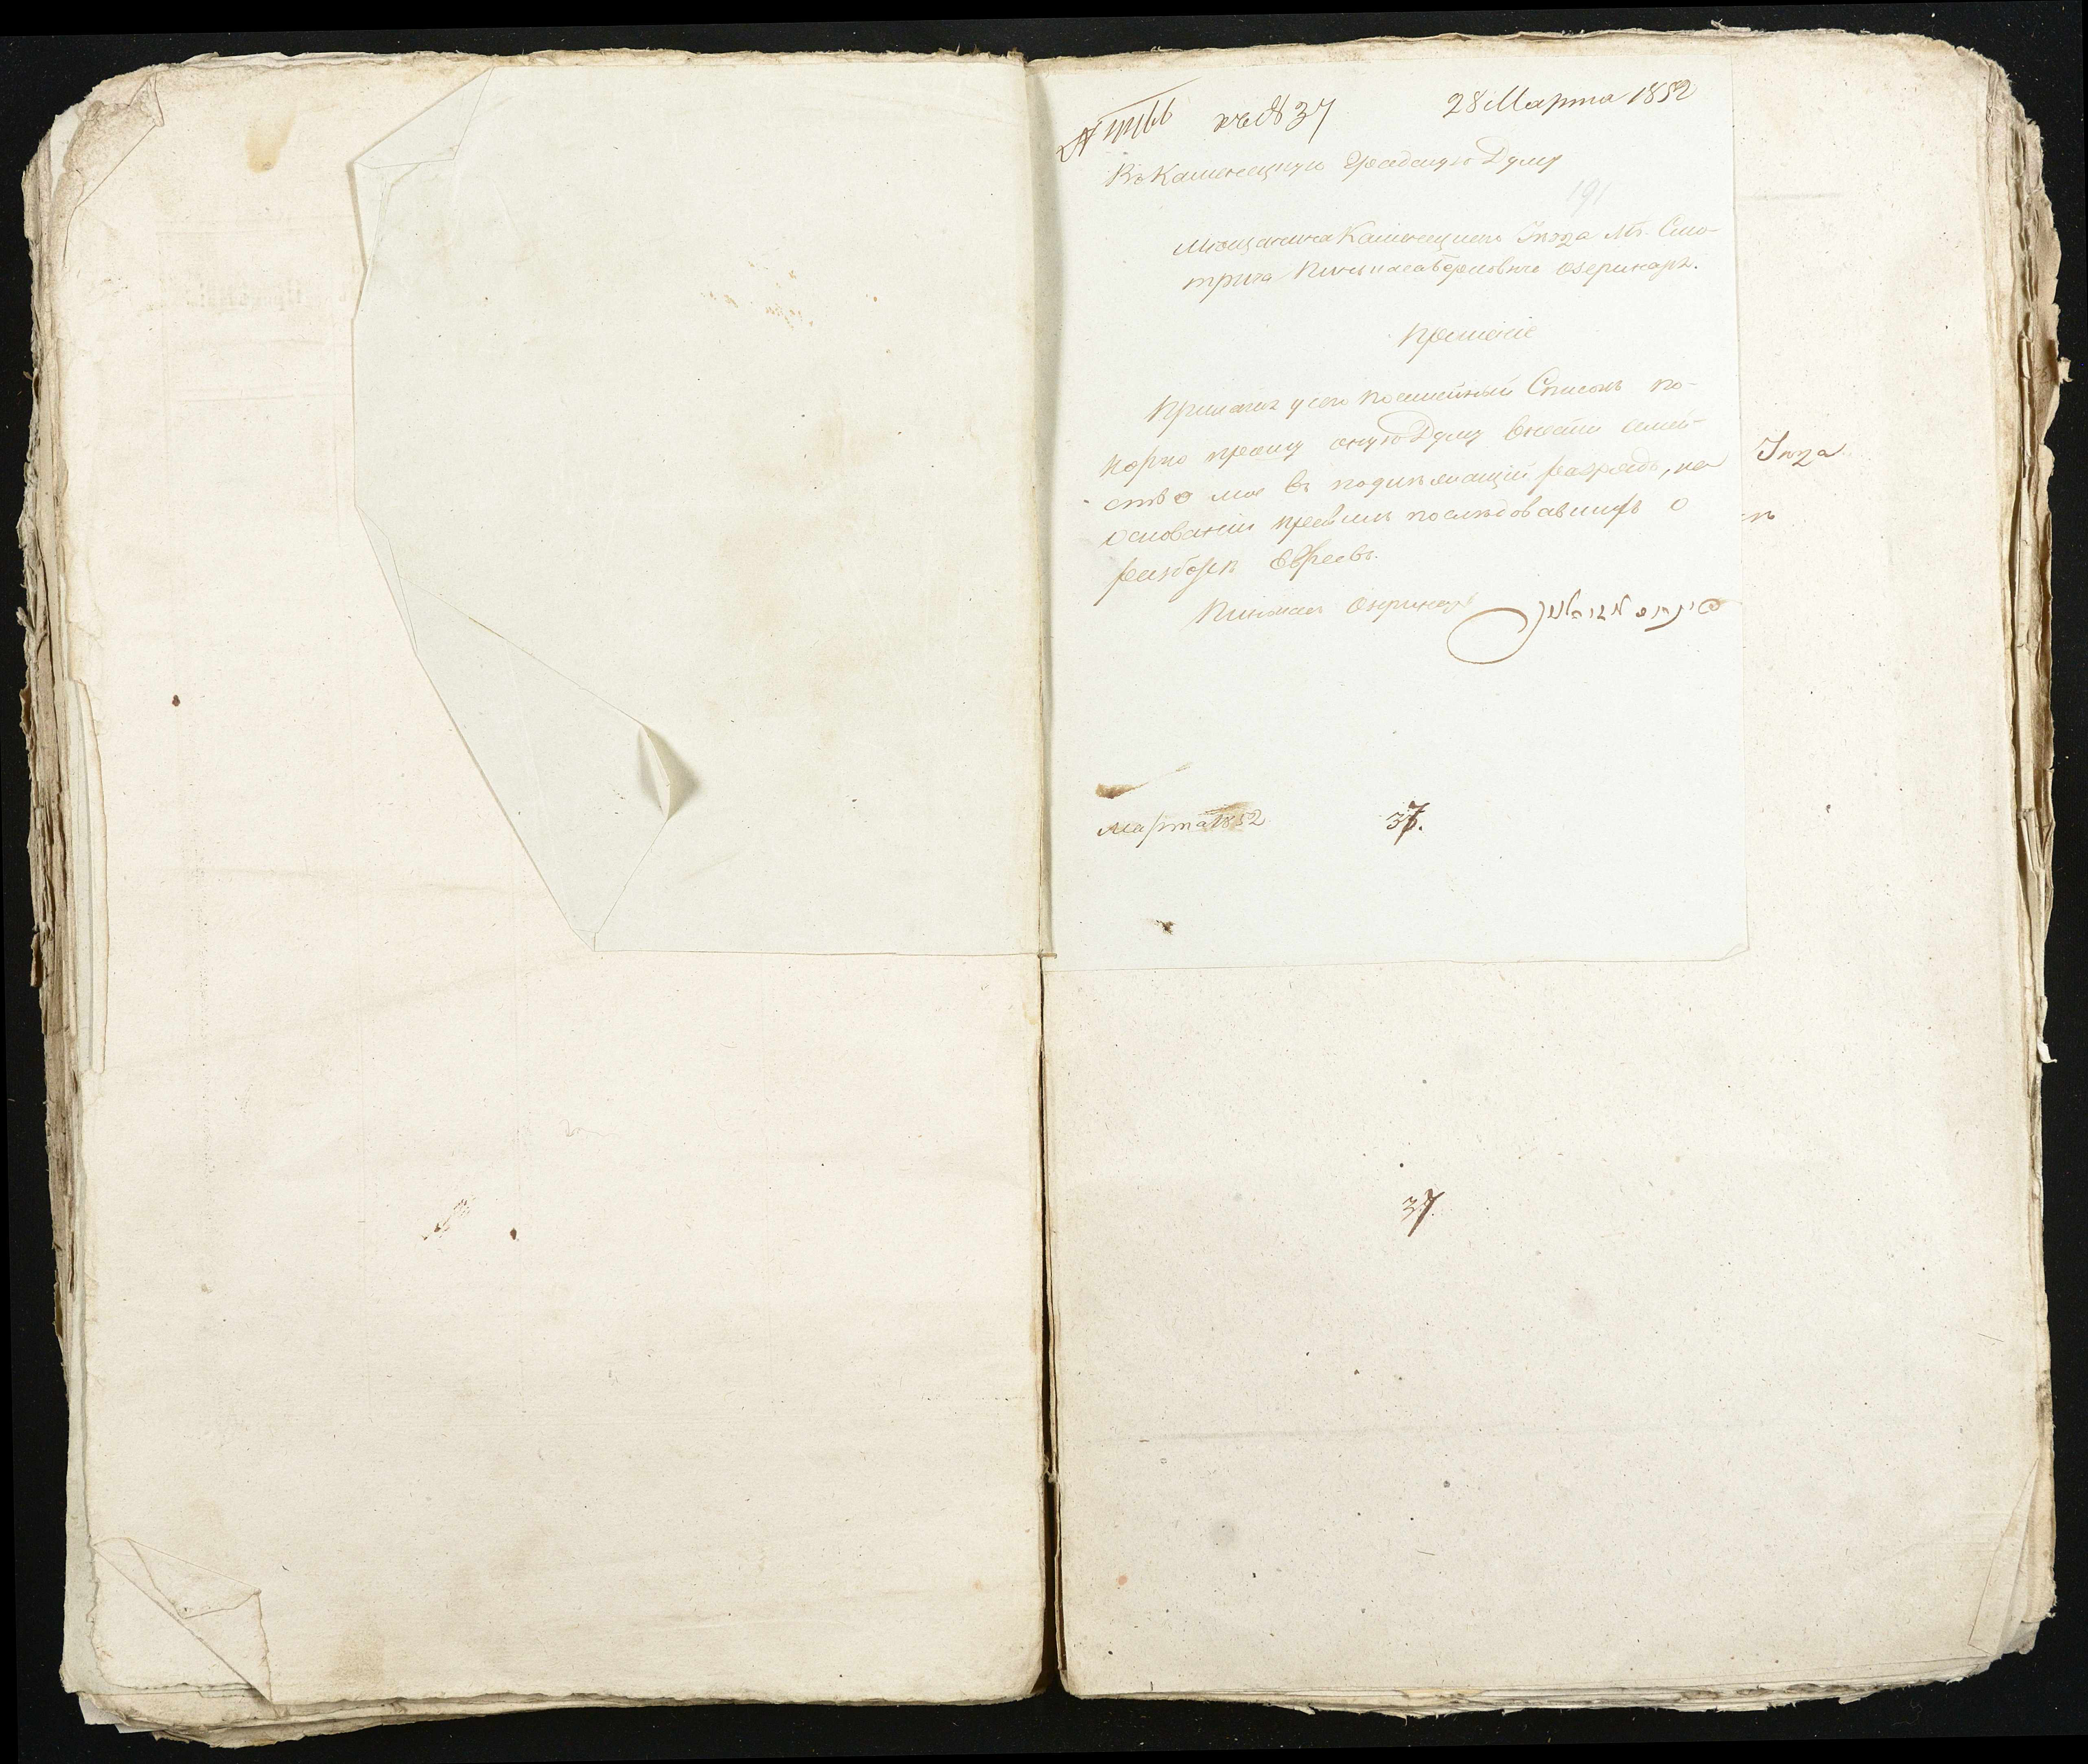 къ № 37 28 Марта 1852
Въ Каменецкую Градскую Думу
191
Мѣщанина Каменецкаго Уѣзда М. Смо-
трича Пинькаса Берковича
Прошеніе
Прилагая у сего посемейный Списокъ по-
корно прошу оную Думу внести семей-
ство мое въ подлежащій разрядъ, на
основаніи правилъ послѣдовавшихъ о
разборѣ Евреевъ.
Пинькасъ
Уѣзда
Марта 1852 37.
37.